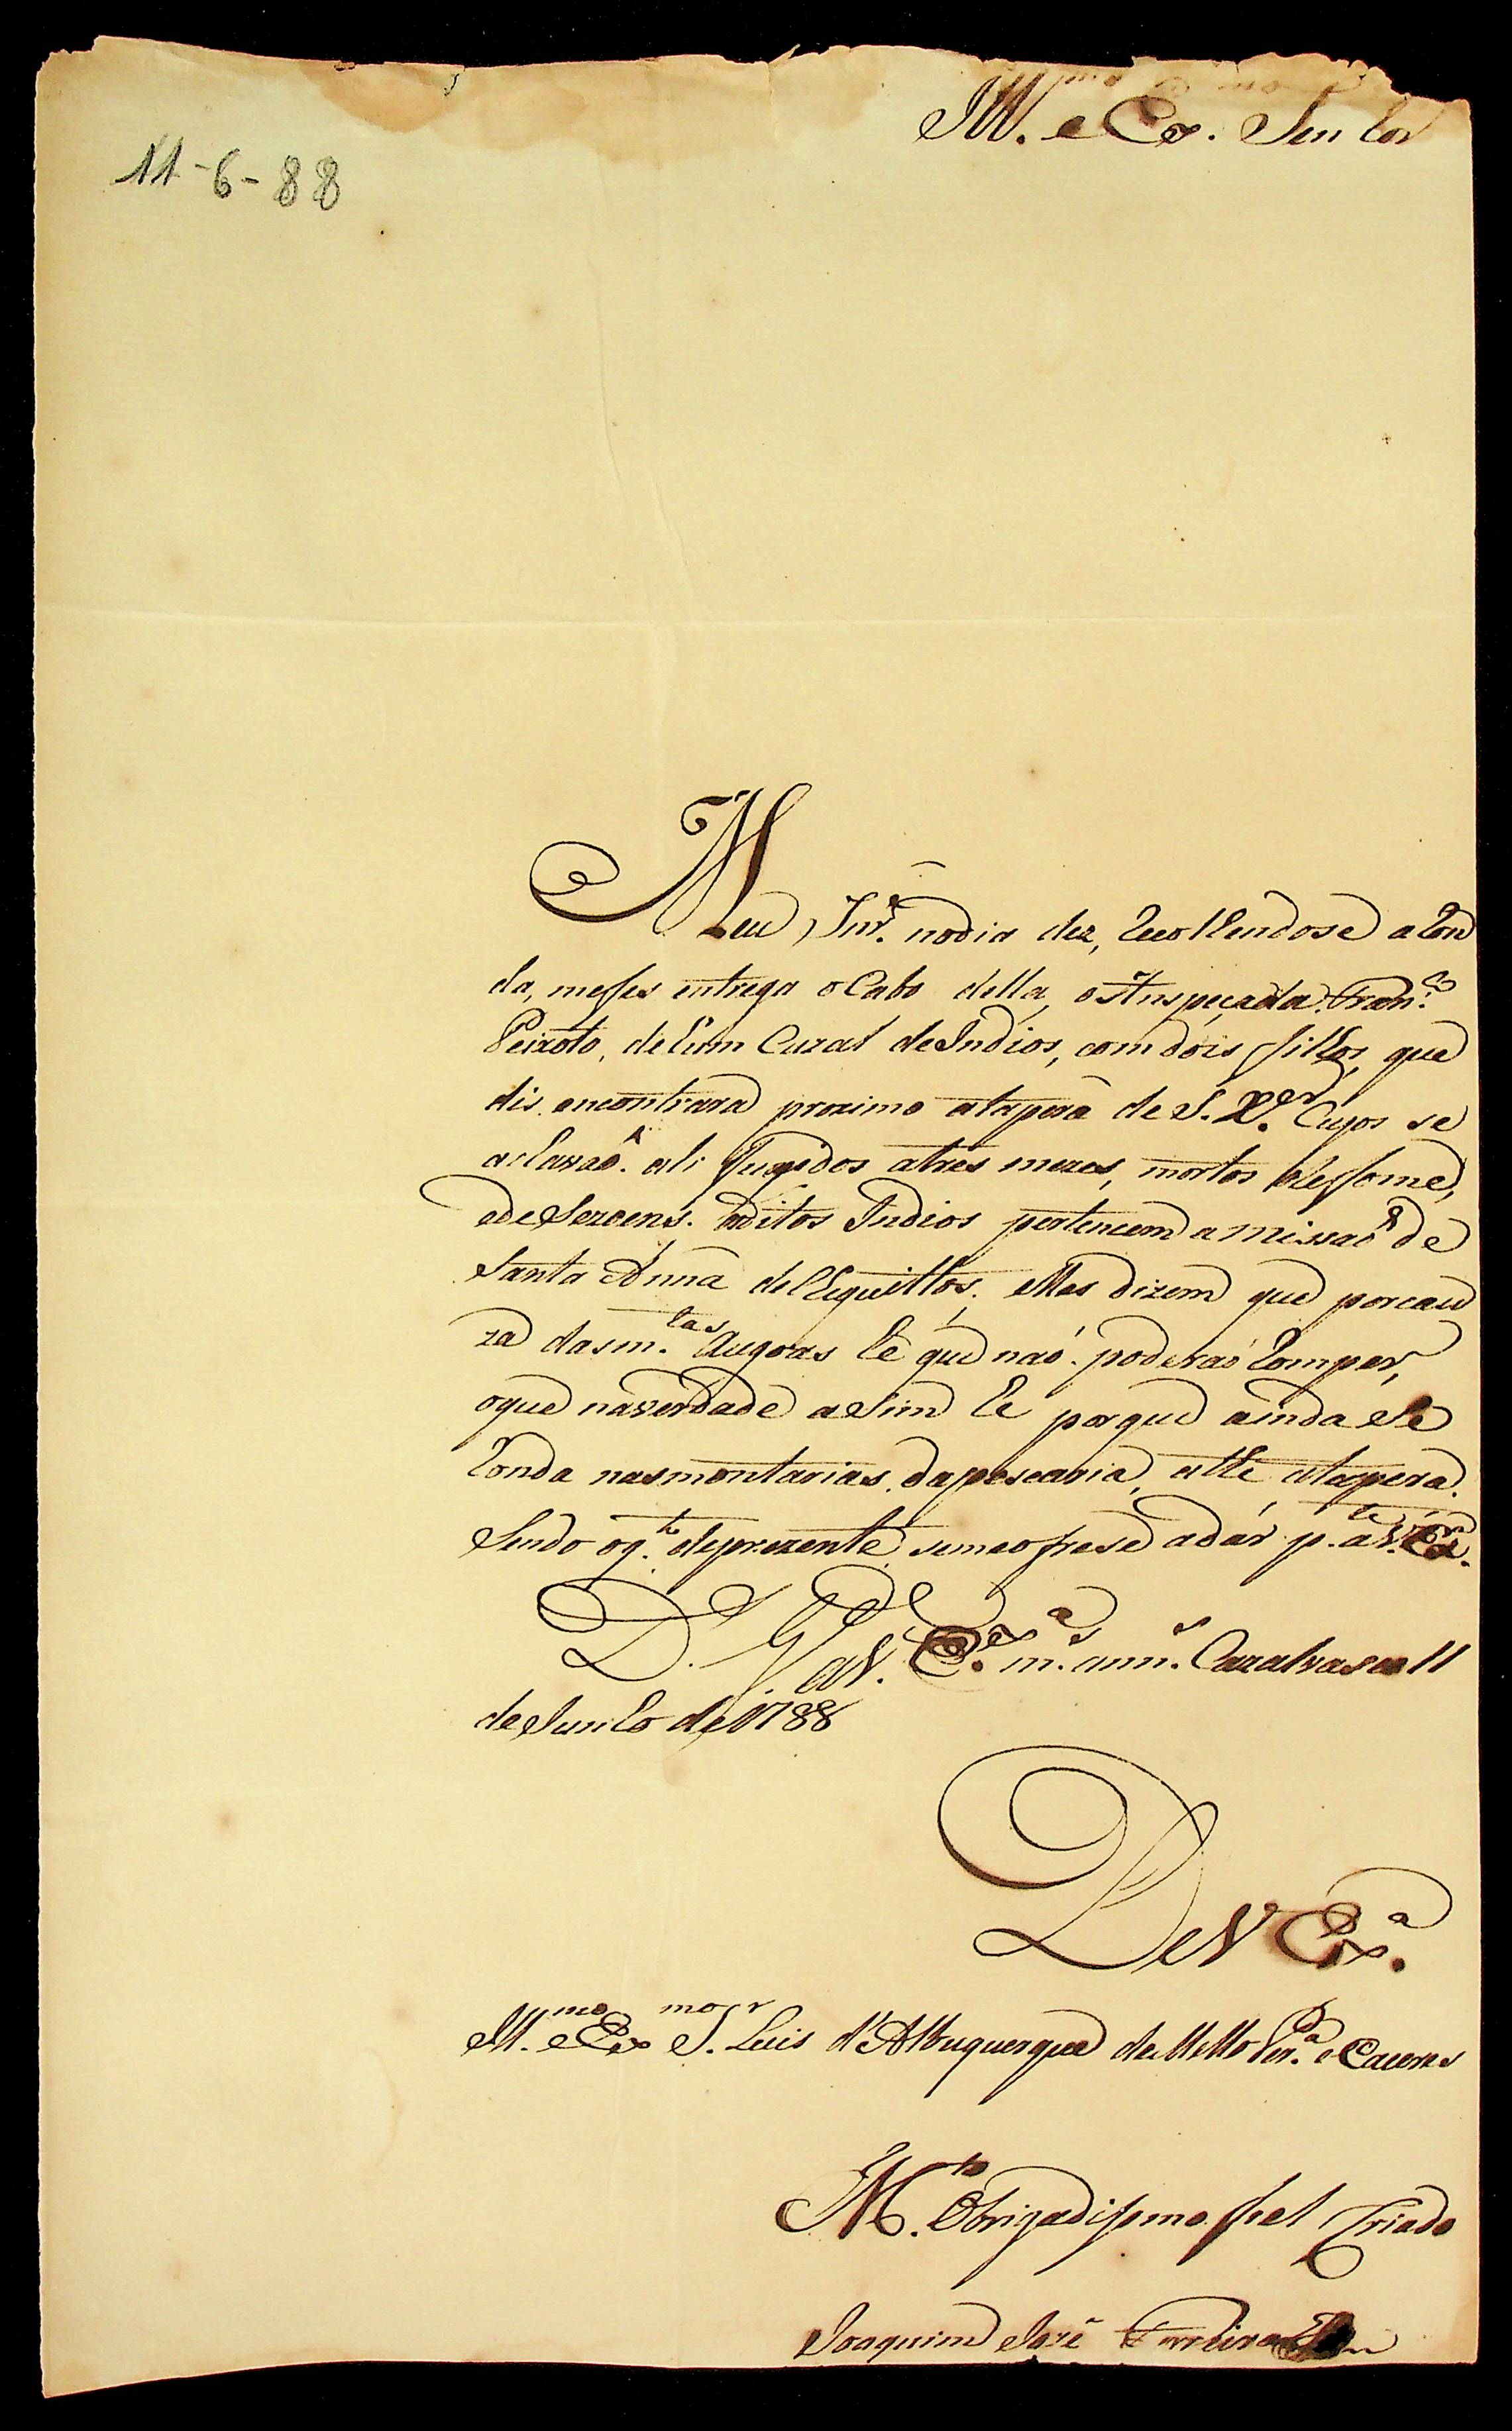 Ill.mo e Ex.mo Senhor
11-6-88
Meu Snr. no dia dez, recolhendose a Ron
da, mefes entrega o Cabo della, o Anspeçada Fran.co
Peixoto, de hum Cazal de Indios, com dois filhos, que
dis encontrara proximo atapera de S. X.er Cujos se
achavaõ ali fugidos atres mezes, mortos de fome,
e de Sezoens. Ditos Indios pertencem a missaõ de
Santa Anna de Chequittos; elles dizem que porcau
za dasm.tas Augoas he que naõ poderaõ Romper,
oque naverdade asim he porque ainda se
Ronda nasmontarias dapescaria, athe atapera.
Sendo oq.to deprezente semeofrese adár p.te a V. Ex.a
D. G. a V. Ex.a m.s ann.s Cazalvasco 11
de Junho de 1788
De V Ex.a
Ill.mo e Ex.mo S.r Luis d'Albuquerque de Mello Per.a e Caceres
M.to Obrigadissimo fiel Criado
Joaquim José Ferreira